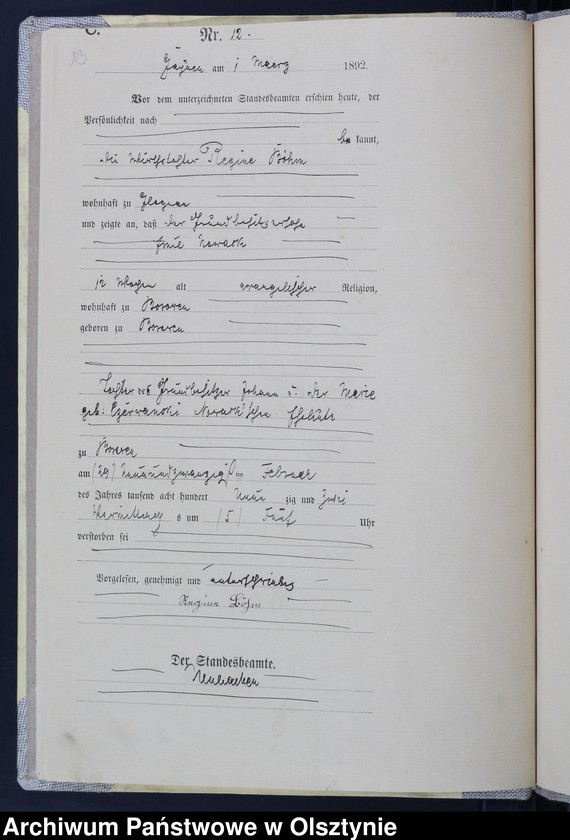 C.
Nr. 12.
13
am 1 Maerz 1892.
Vor dem unterzeichneten Standesbeamten erschien heute, der
Persönlichkeit nach
bekannt,
die Wirthstochter Regine Böhm
wohnhaft zu
und zeigte an, daß der Grundbesitzersohn
Emil Nowack
12 Wochen alt evangelischer Religion,
wohnhaft zu
geboren zu
Tochter des Grundbesitzer Johann u. der Marie
geb: Czerwanski Nowack'schen Eheleute
zu
am (29) Neunundzwanzig im Februar
des Jahres tausend acht hundert Neun zig und Zwei
Vormittags um (5) Fünf Uhr
verstorben sei
Vorgelesen, genehmigt und unterschrieben
Regine Böhm
Der Standesbeamte.
Archiwum Państwowe w Olsztynie